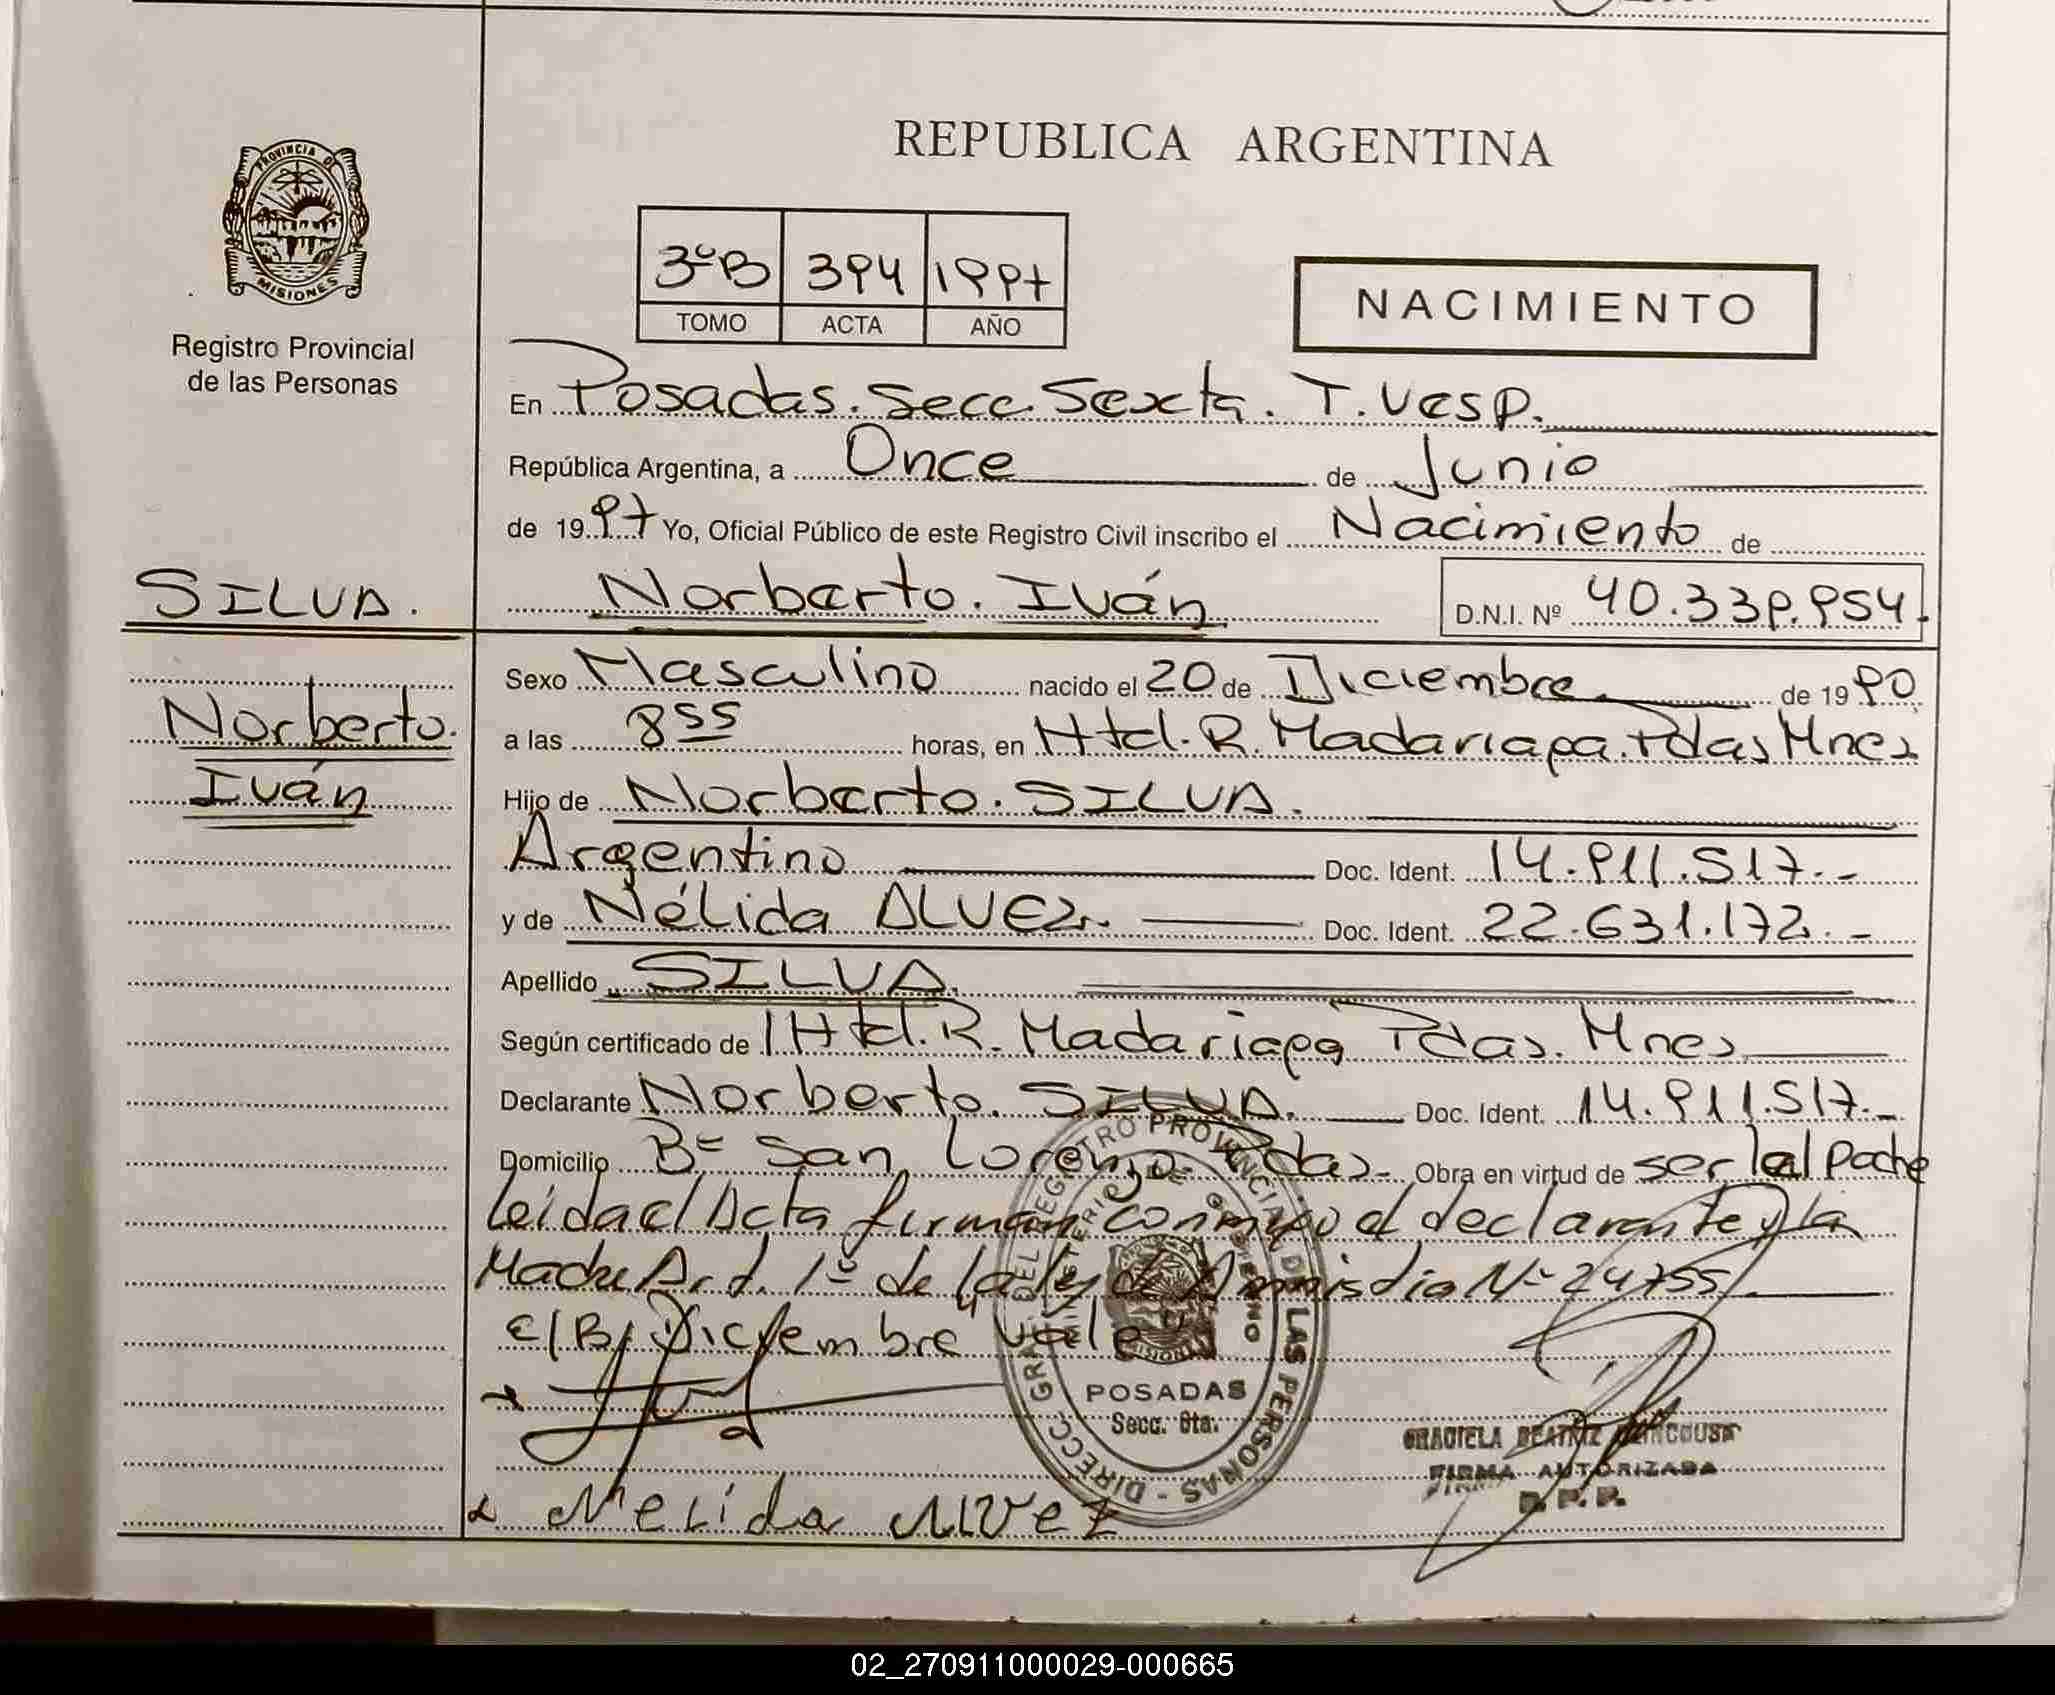 REPUBLICA ARGENTINA
PROVINCIA DE
MISIONES
Registro Provincial
de las Personas
3ºB 394 1997
TOMO ACTA AÑO
NACIMIENTO
En Posadas. Secc. Sexta. T. Vesp.
República Argentina, a Once de Junio
de 1997 Yo, Oficial Público de este Registro Civil inscribo el Nacimiento de
SILVA.
Norberto. Iván D.N.I. Nº 40.339.954.
Norberto.
Iván
Sexo Masculino nacido el 20 de Diciembre de 1990
a las 8 55 horas, en Htal. R. Madariaga. Pdas Mnes
Hijo de Norberto. SILVA.
Argentino Doc. Ident. 14.911.517.-
y de Nélida ALVEZ. Doc. Ident. 22.631.172.-
Apellido SILVA.
Según certificado de Htal. R. Madariaga Pdas. Mnes
Declarante Norberto. SILVA. Doc. Ident. 14.911.517.-
Domicilio Bº San Lorenzo. Pdas- Obra en virtud de ser el padre
leida el Acta firman conmigo el declarante y la
Madre Art. 1º de la ley de Amnistia Nº 24755
E/B/ Diciembre "Vale"
DIRECC. GRAL. DEL REGISTRO PROVINCIAL DE LAS PERSONAS -
MINISTERIO DE GOBIERNO
POSADAS
Secc. 6ta.
GRACIELA BEATRIZ
FIRMA AUTORIZADA
R. P. P.
Nelida Alvez
02_270911000029-000665